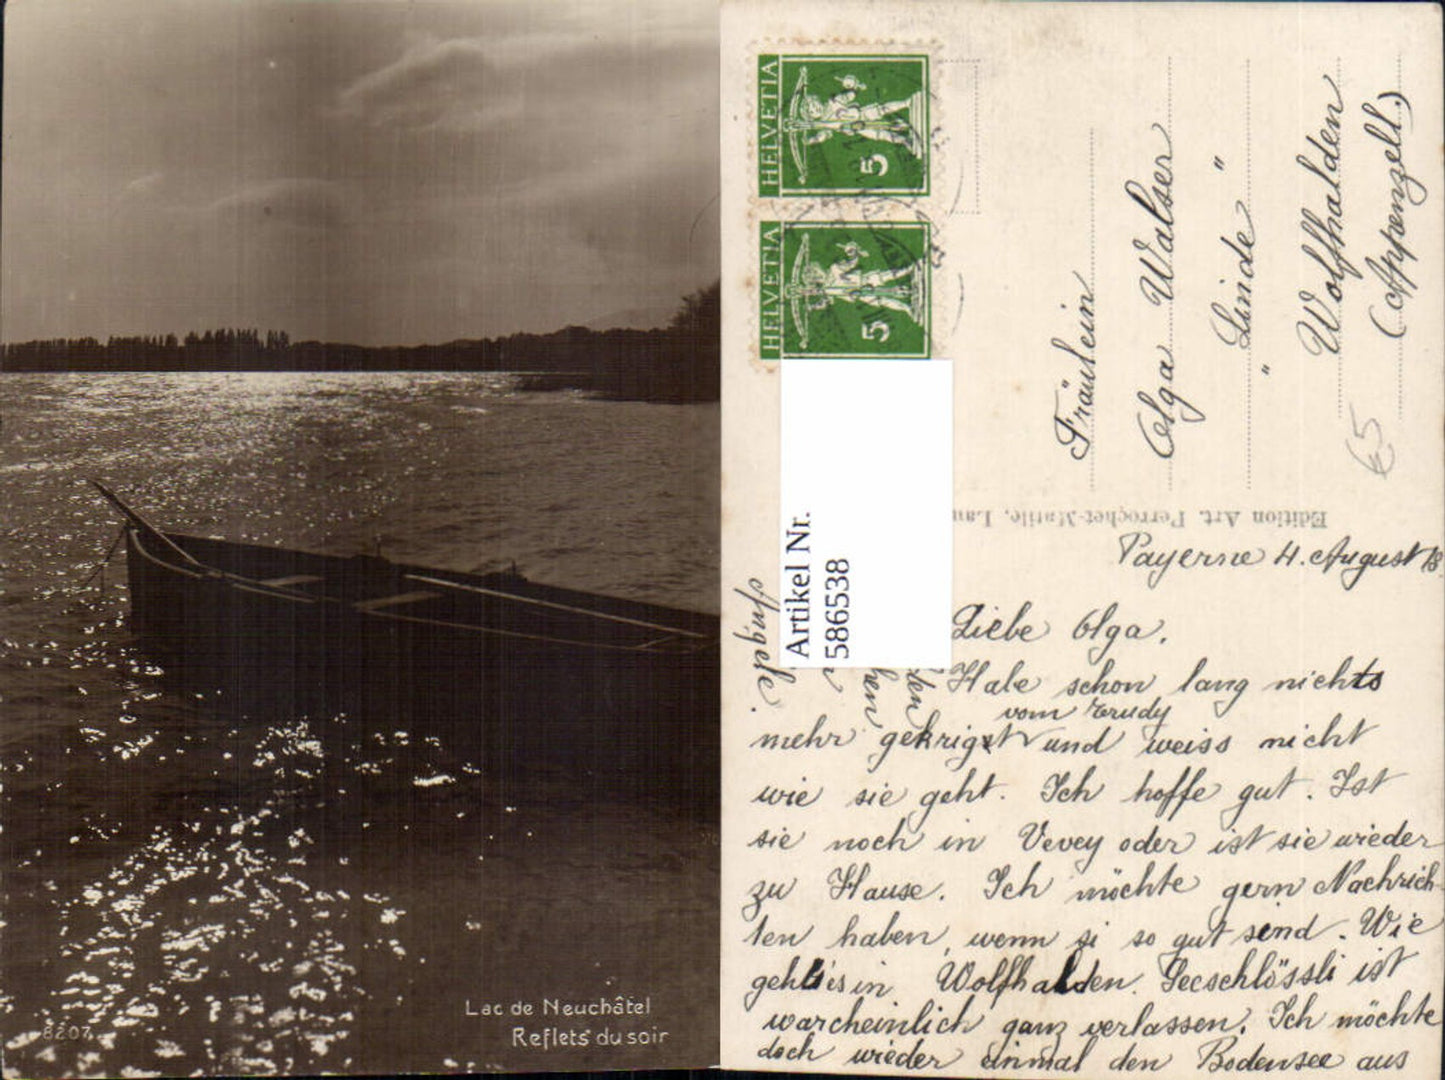 Lac de Neuchâtel
Reflets du soir
8207
HELVETIA
5
HELVETIA
5
Fräulein
Olga Walser
"Linde"
Wolfhalden
(Appenzell.)
€5
Edition Art. Perrochet-Matile, Lau
Artikel Nr.
586538
Payerne 4. August 18
Liebe Olga.
Habe schon lang nichts
vom Trudy
mehr gekrigt und weiss nicht
wie sie geht. Ich hoffe gut. Ist
sie noch in Vevey oder ist sie wieder
zu Hause. Ich möchte gern Nachrich
ten haben, wenn si so gut sind. Wie
geht's in Wolfhalden. Seeschlössli ist
warcheinlich ganz verlassen. Ich möchte
doch wieder einmal den Bodensee aus
Angele.